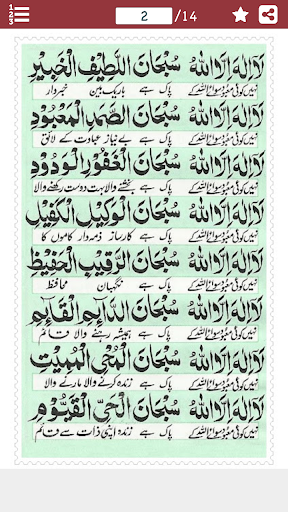 2 /14
لَا اِلٰهَ اِلَّا اللّٰهُ سُبْحَانَ اللَّطِيْفِ الْخَبِيْرِ
نہیں کوئی معبود سوائے اللہ کے پاک ہے باریک بین خبردار
لَا اِلٰهَ اِلَّا اللّٰهُ سُبْحَانَ الصَّمَدِ الْمَعْبُوْدِ
نہیں کوئی معبود سوائے اللہ کے پاک ہے بے نیاز عبادت کے لائق
لَا اِلٰهَ اِلَّا اللّٰهُ سُبْحَانَ الْغَفُوْرِ الْوَدُوْدِ
نہیں کوئی معبود سوائے اللہ کے پاک ہے بخشنے والا بہت دوست رکھنے والا
لَا اِلٰهَ اِلَّا اللّٰهُ سُبْحَانَ الْوَكِيْلِ الْكَفِيْلِ
نہیں کوئی معبود سوائے اللہ کے پاک ہے کارساز ذمہ دار کاموں کا
لَا اِلٰهَ اِلَّا اللّٰهُ سُبْحَانَ الرَّقِيْبِ الْحَفِيْظِ
نہیں کوئی معبود سوائے اللہ کے پاک ہے نگہبان محافظ
لَا اِلٰهَ اِلَّا اللّٰهُ سُبْحَانَ الدَّآئِمِ الْقَآئِمِ
نہیں کوئی معبود سوائے اللہ کے پاک ہے ہمیشہ رہنے والا قائم
لَا اِلٰهَ اِلَّا اللّٰهُ سُبْحَانَ الْمُحْيِ الْمُمِيْتِ
نہیں کوئی معبود سوائے اللہ کے پاک ہے زندہ کرنے والا مارنے والا
لَا اِلٰهَ اِلَّا اللّٰهُ سُبْحَانَ الْحَيِّ الْقَيُّوْمِ
نہیں کوئی معبود سوائے اللہ کے پاک ہے زندہ اپنی ذات سے قائم